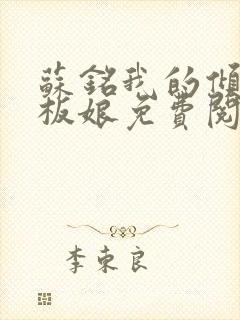 蘇銘我的傾
板娘免費閱
李東良